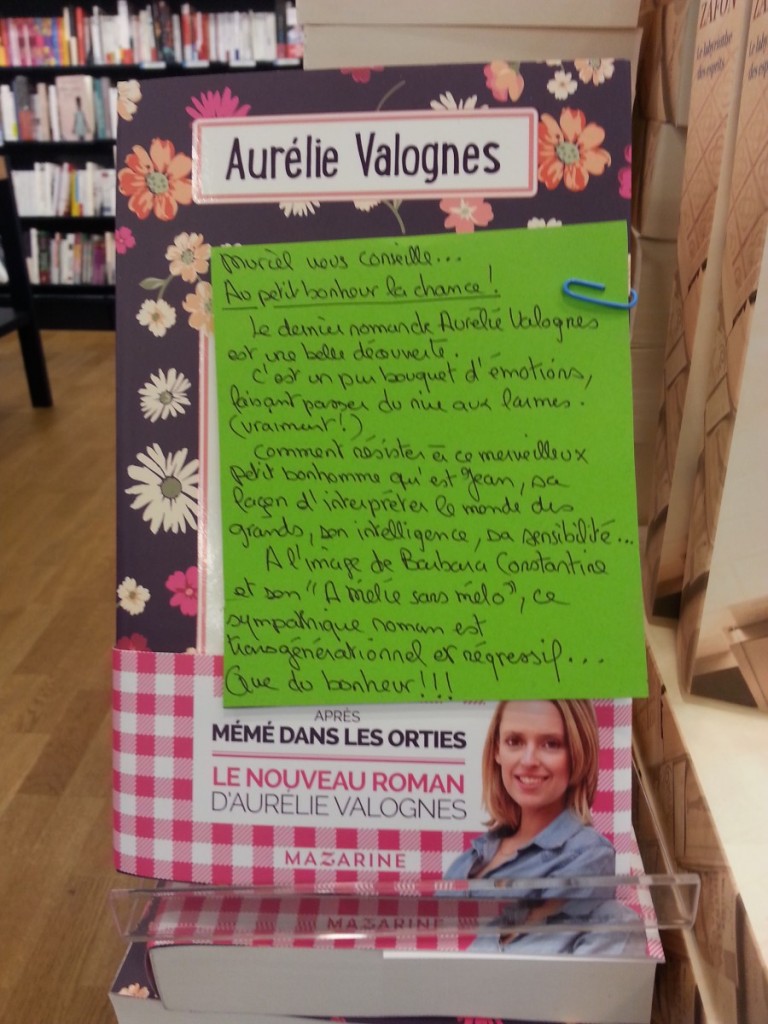 ZAFÓN
Le labyrinthe
des esprits
ZA
Aurélie Valognes
Muriel vous conseille...
Au petit bonheur la chance !
Le dernier roman de Aurélie Valognes
est une belle découverte.
C'est un pur bouquet d'émotions,
faisant passer du rire aux larmes.
(vraiment !)
Comment résister à ce merveilleux
petit bonhomme qu'est Jean, sa
façon d'interpréter le monde des
grands, son intelligence, sa sensibilité...
A l'image de Barbara Constantine
et son "Amélie sans mélo", ce
sympathique roman est
transgénérationnel et régressif...
Que du bonheur !!!
APRÈS
MÉMÉ DANS LES ORTIES
LE NOUVEAU ROMAN
D'AURÉLIE VALOGNES
MAZARINE
MAZARINE